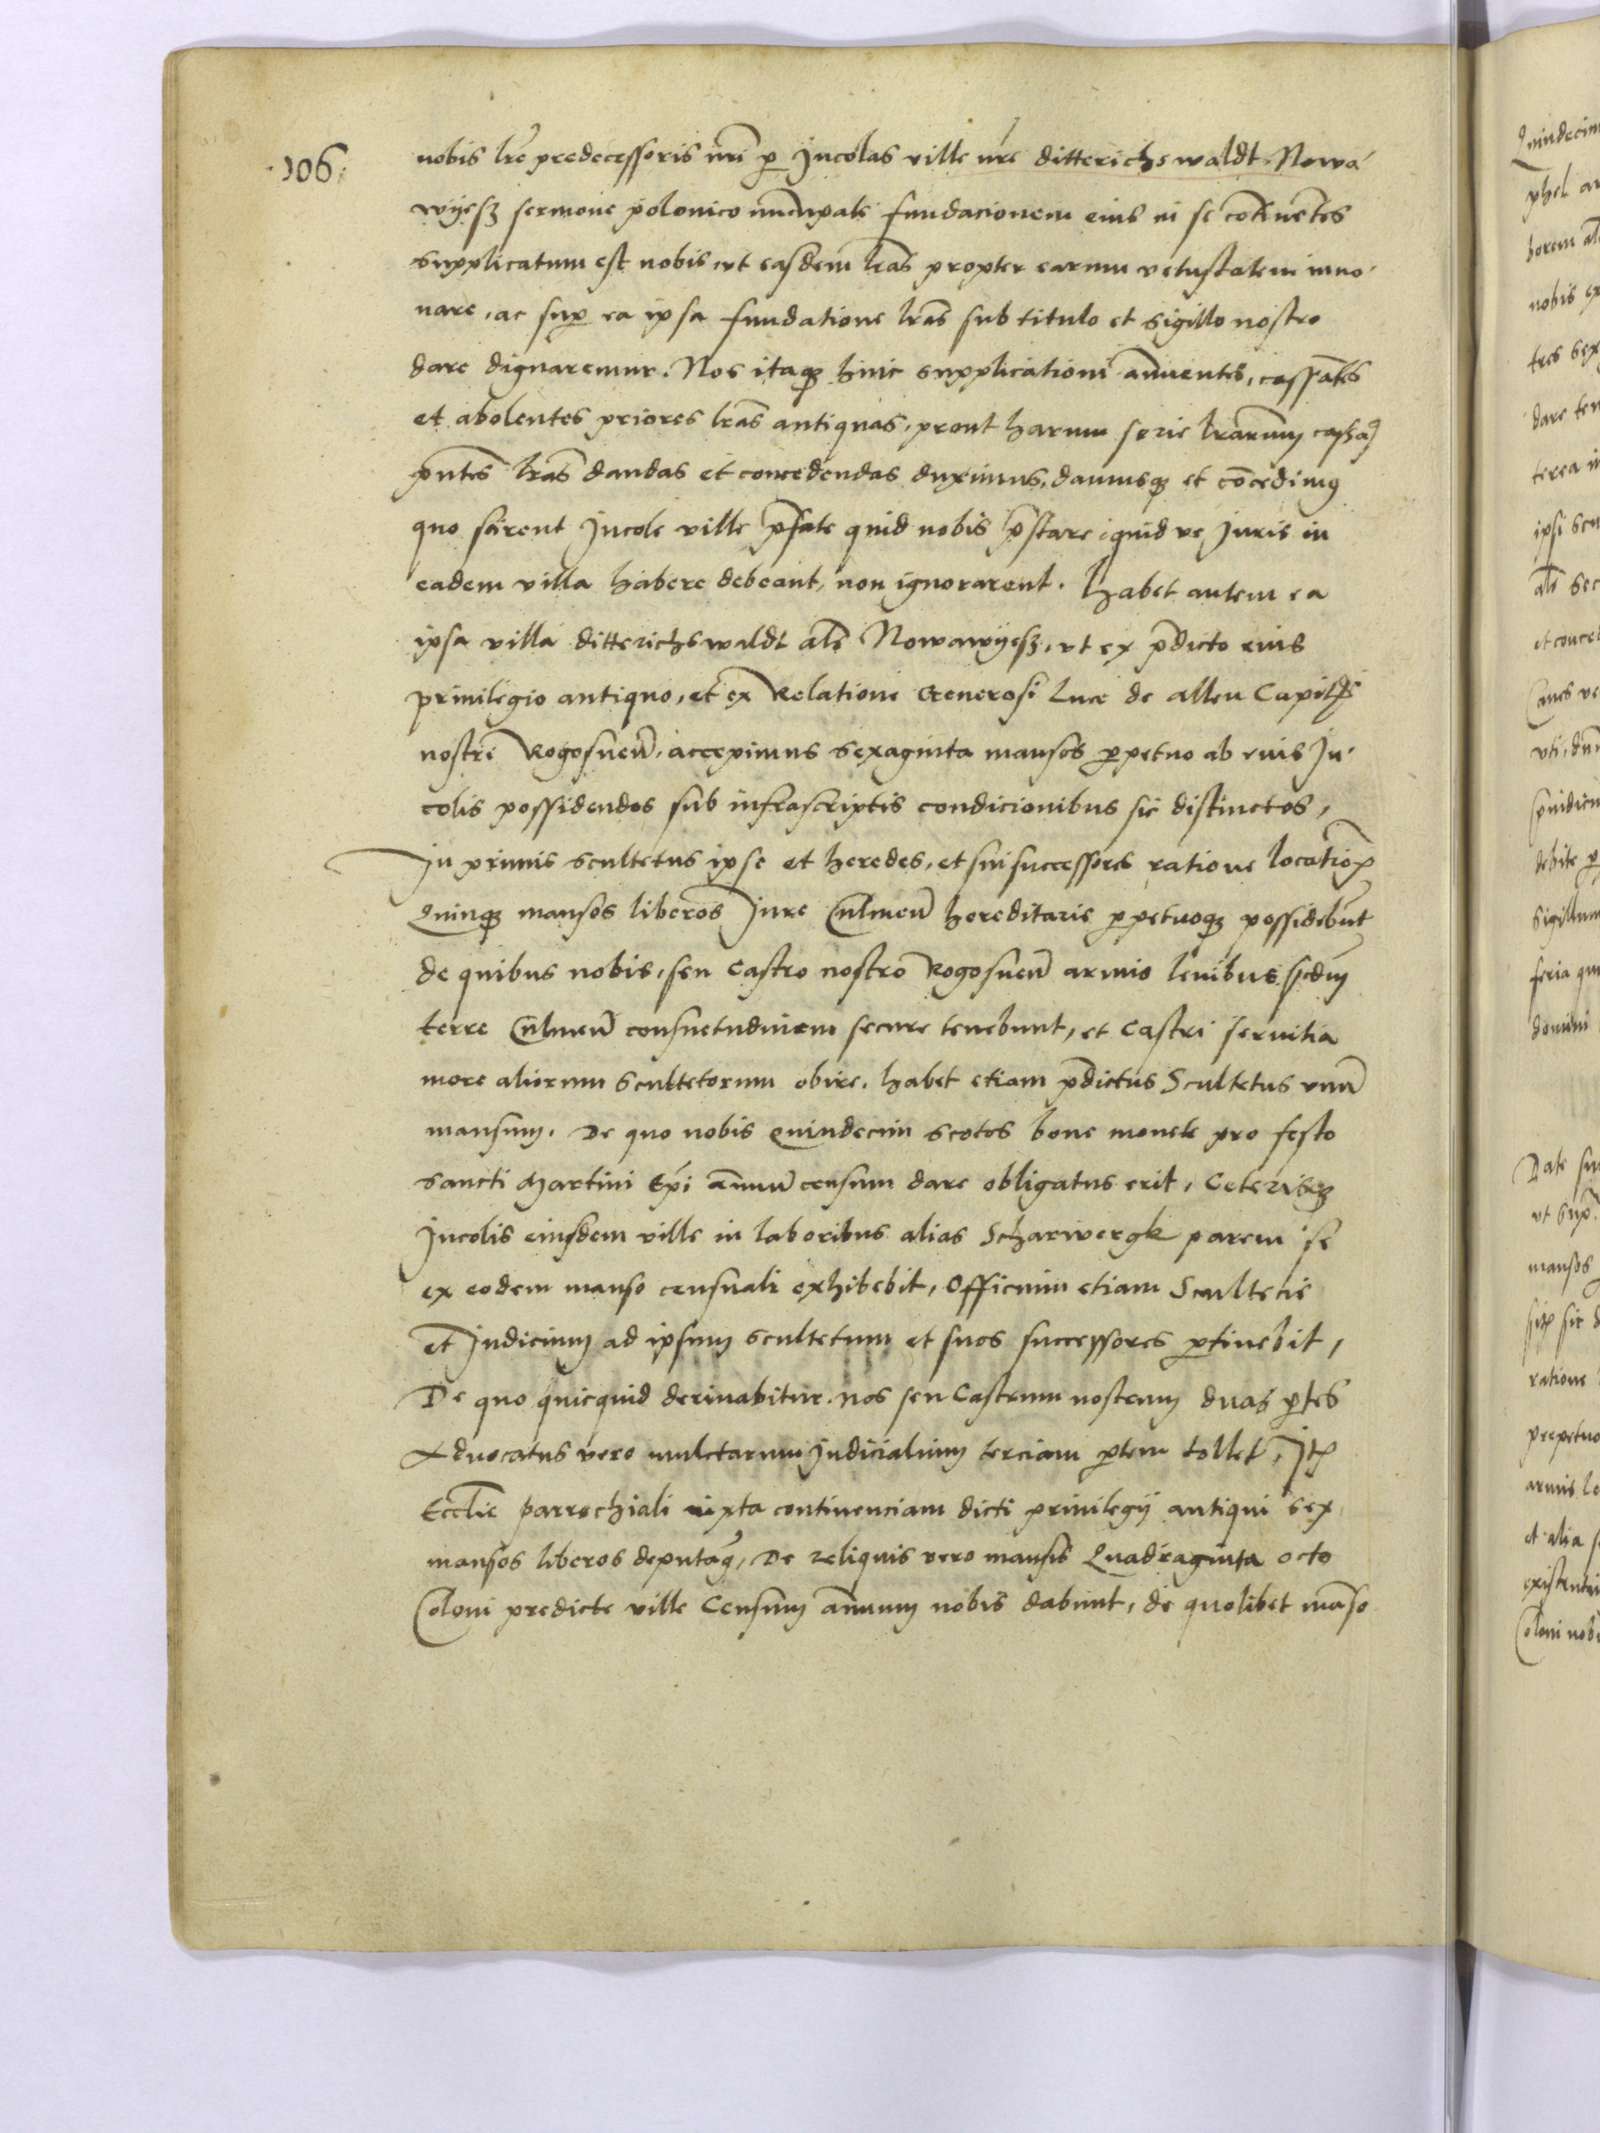 ·106·
nobis lre predecessoris nri p Incolas ville nre ditterichswaldt. Nowa-
wyesz sermone polonico nuncupate fundacionem eius in se contiñetes
supplicatum est nobis, vt easdem lras propter earum vetustatem inno-
uare, ac sup ea ipsa fundatione lras sub titulo et sigillo nostro
dare dignaremur. Nos itaq huic supplicationi annuentes, cassãtes
et abolentes priores lras antiquas, prout harum serie lrarum
pñtes lras dandas et concedendas duximus, damusq et cõcedimus
quo scirent Incole ville pfate quid nobis pstare, quid ve Juris in
eadem villa habere debeant, non ignorarent. Habet autem ea
ipsa villa ditterichswaldt als Nowawyesz, vt ex pdicto eius
priuilegio antiquo, et ex Relatione Generosi Luce de allen Capit
nostri Rogosneñ, accepimus sexaginta mansos ppetuo ab euis In-
colis possidendos sub infrascriptis condicionibus sic distinctos,
In primis scultetus ipse et heredes, et sui successores ratione location
Quinq mansos liberos Jure Culmeñ hereditarie ppetuoq possidebũt
de quibus nobis, seu Castro nostro Rogosneñ armis leuibus scdm
terre Culmeñ consuetudinem secure tenebunt, et Castri seruitia
more aliorum scultetorum obire. habet etiam pdictus Scultetus vnũ
mansum. De quo nobis quindecim scotos bone monete pro festo
sancti Martini Epi annuũ censum dare obligatus erit, Ceterisq
Incolis eiusdem ville in laboribus alias Scharwergk parem se
ex eodem manso censuali exhibebit, Officium etiam Scultecie
et Judicium ad ipsum scultetum et suos successores ptinebit,
De quo quicquid deriuabitur. nos seu Castrum nostrum duas ptes
Aduocatus vero mulctarum Judicialium terciam ptem tollet, Jt
Ecclie parrochiali iuxta continenciam dicti priuilegij antiqui sex
mansos liberos deputaq, De reliquis vero mansis Quadraginta octo
Coloni predicte ville Censum annum nobis dabunt, de quolibet mãso